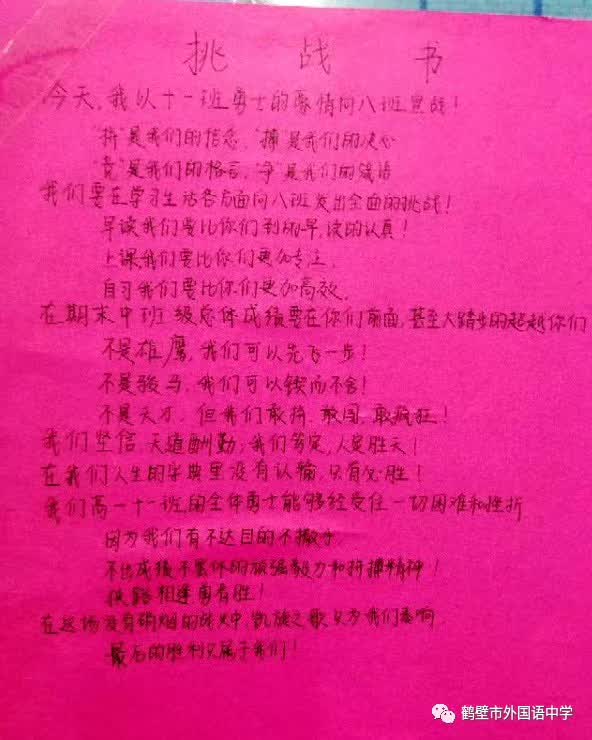 挑战书
今天,我以十一班勇士的豪情向八班宣战!
"拼"是我们的信念,"搏"是我们的决心
"竞"是我们的格言,"争"是我们的箴语
我们要在学习生活各方面向八班发出全面的挑战!
早读我们要比你们到的早,读的认真!
上课我们要比你们更加专注,
自习我们要比你们更加高效,
在期末中班级总体成绩要在你们前面,甚至大踏步的超越你们
不是雄鹰,我们可以先飞一步!
不是骏马,我们可以锲而不舍!
不是天才,但我们敢拼,敢闯,敢疯狂!
我们坚信,天道酬勤;我们笃定,人定胜天!
在我们人生的字典里没有认输,只有必胜!
我们高一十一班的全体勇士能够经受住一切困难和挫折
因为我们有不达目的不撒手,
不出成绩不罢休的顽强毅力和拼搏精神!
狭路相逢勇者胜!
在这场没有硝烟的战火中,凯旋之歌只为我们奏响,
最后的胜利只属于我们!
鹤壁市外国语中学